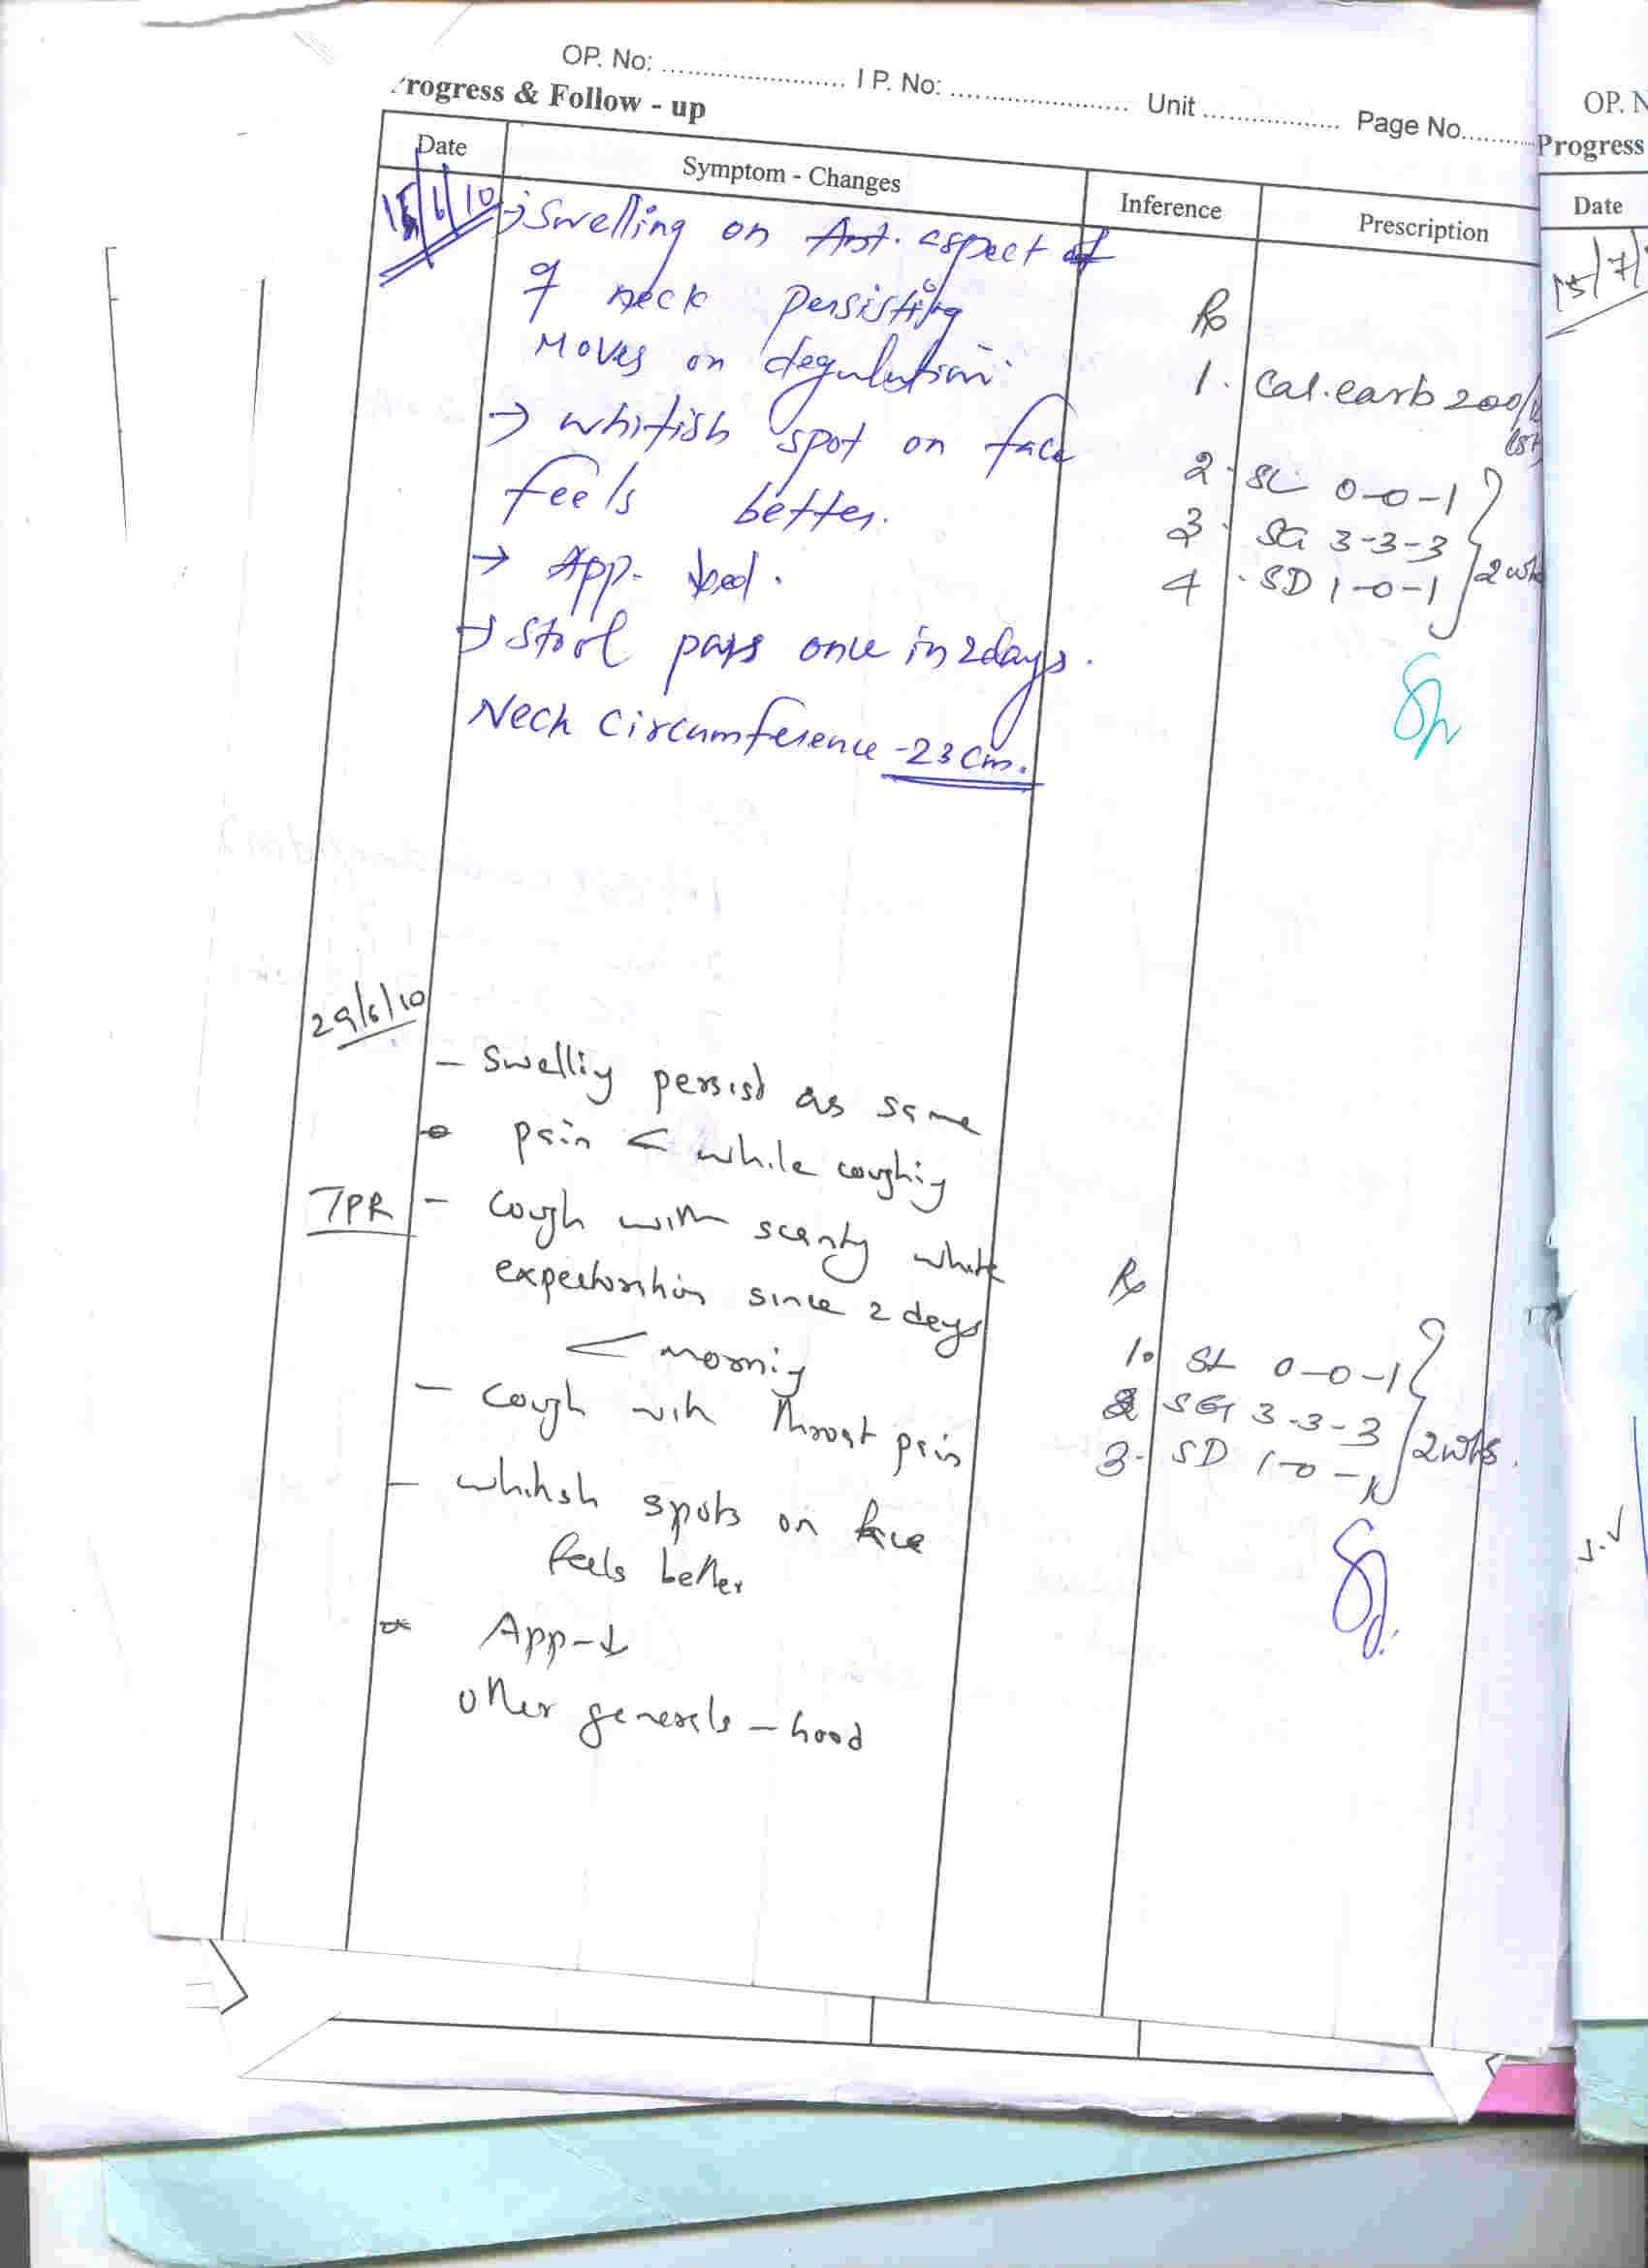 OP. No: ........................ I P. No: ........................ Unit .................. Page No..........
rogress & Follow - up
Date Symptom - Changes Inference Prescription
15/6/10 → Swelling on Ant. aspect of
of neck persisting
Moves on degulution.
→ whitish spot on face
feels better.
→ App-
→ Stool pass once in 2days.
Neck circumference - 23 cm.
Rx
1. Cal.carb 200/
2. SL 0-0-1
3. SG 3-3-3
4. SD 1-0-1
2 wks
29/6/10
- Swelling persist as same
pain < while coughing
TPR - Cough with scanty white
expectoration since 2 days
< morning
- Cough with Throat pain
- whitish spots on face
feels better
App-↓
other generals - Good
Rx
1. SL 0-0-1
2 SG 3-3-3
3. SD 1-0-1
2wks.
OP. N
Progress
Date
15/7/